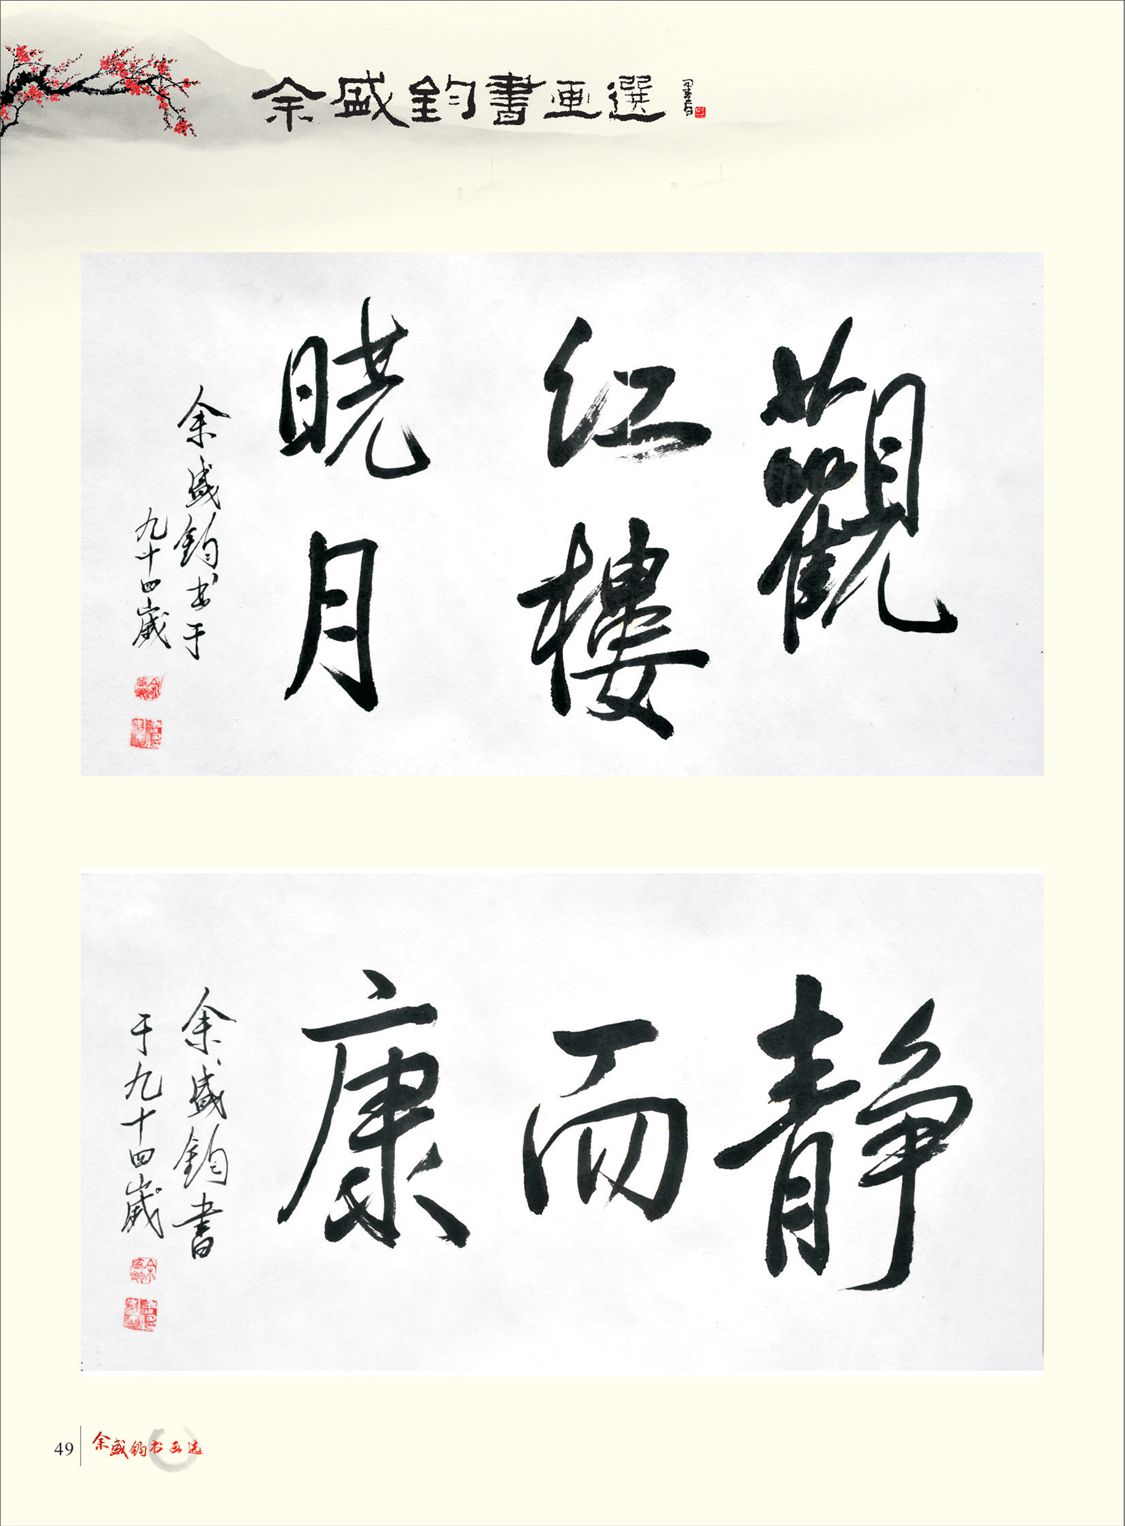 余盛鈞書画選
觀
红樓
晓月
余盛鈞书于
九十四歲
静
而
康
余盛鈞書
于九十四歲
49
余盛钧书画选